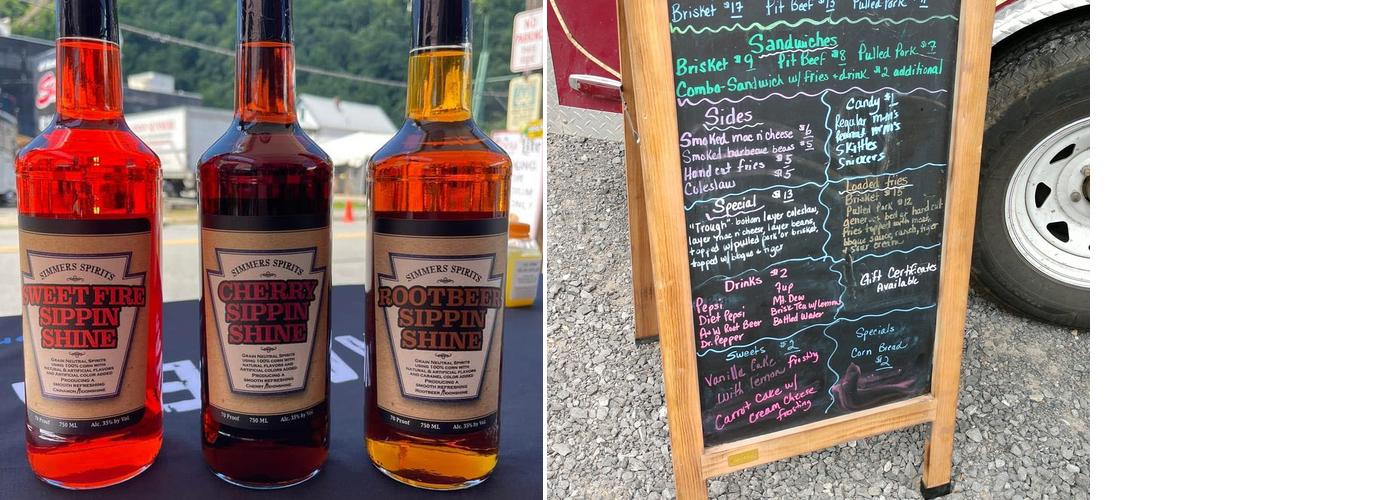 NO
PARKING
SIMMERS SPIRITS
SWEET FIRE
SIPPIN
SHINE
GRAIN NEUTRAL SPIRITS
USING 100% CORN WITH
NATURAL FLAVORS AND
ARTIFICIAL COLORS ADDED
PRODUCING A
SMOOTH REFRESHING
CINNAMON MOONSHINE
70 Proof 750 ML Alc. 35% by Vol.
SIMMERS SPIRITS
CHERRY
SIPPIN
SHINE
GRAIN NEUTRAL SPIRITS
USING 100% CORN WITH
NATURAL FLAVORS AND
ARTIFICIAL COLORS ADDED
PRODUCING A
SMOOTH REFRESHING
CHERRY MOONSHINE
70 Proof 750 ML Alc. 35% by Vol.
SIMMERS SPIRITS
ROOTBEER
SIPPIN
SHINE
GRAIN NEUTRAL SPIRITS
USING 100% CORN WITH
NATURAL & ARTIFICIAL FLAVORS
AND CARAMEL COLOR ADDED
PRODUCING A
SMOOTH REFRESHING
ROOTBEER MOONSHINE
70 Proof 750 ML Alc. 35% by Vol.
Brisket $17 Pit Beef $13 Pulled Pork
Sandwiches
Brisket $9 Pit Beef $8 Pulled Pork $7
Combo-Sandwich w/ fries + drink $2 additional
Sides
Smoked mac n' cheese $6
Smoked barbecue beans $5
Hand cut fries $5
Coleslaw $5
Candy $1
Regular m+m's
Peanut m+m's
Skittles
Snickers
Special $13
"Trough" bottom layer coleslaw,
layer mac n' cheese, layer beans,
topped w/ pulled pork or brisket,
topped w/ bbque + tiger
Loaded fries
Brisket $15
Pulled Pork $12
generous bed of hand cut
fries topped with meat,
bbque sauce, ranch, tiger
+ sour cream
Drinks $2
Pepsi
Diet Pepsi
A+W Root Beer
Dr. Pepper
7up
Mt. Dew
Brisk Tea w/ Lemon
Bottled Water
Gift Certificates
Available
Sweets $2
Vanilla Cake
with lemon frosting
Carrot Cake w/
cream cheese
frosting
Specials
Corn Bread
$2